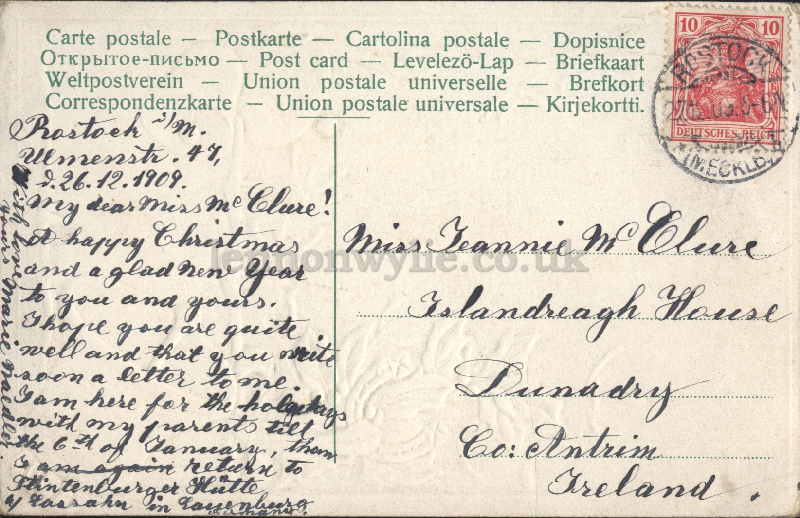 Carte postale — Postkarte — Cartolina postale — Dopisnice
Открытое-письмо — Post card — Levelezö-Lap — Briefkaart
Weltpostverein — Union postale universelle — Brefkort
Correspondenzkarte — Union postale universale — Kirjekortti.
10 10
DEUTSCHES REICH
ROSTOCK
(MECKLB)
Rostock i/M.
Ulmenstr. 47,
d. 26.12.1909.
My dear Miss Mc Clure!
A happy Christmas
and a glad new Year
to you and yours.
I hope you are quite
well and that you write
soon a letter to me.
I am here for the holydays
with my parents till
the 6th of January, than
I am again return to
Stintenburger Hütte
b/ Lassahn in Lauenburg
Germany.
With love
yours Marie
Miss Jeannie Mc Clure
Islandreagh House
Dunadry
Co: Antrim
Ireland.
lennonwylie.co.uk